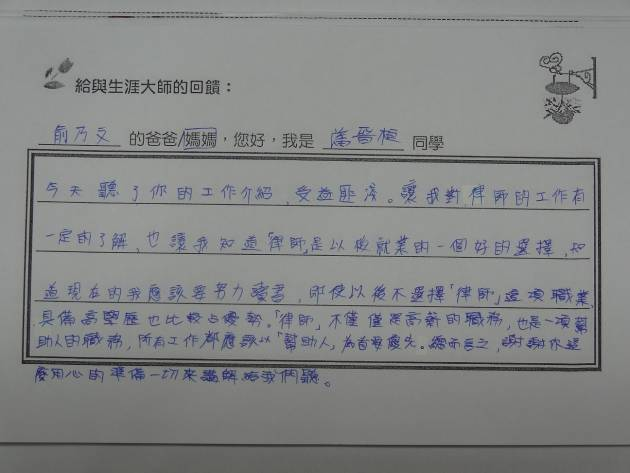 給與生涯大師的回饋：
俞乃文 的爸爸/媽媽，您好，我是 潘晉桓 同學
今天聽了你的工作介紹，受益匪淺。讓我對律師的工作有
一定的了解，也讓我知道「律師」是以後就業的一個好的選擇，知
道現在的我應該要努力讀書，即使以後不選擇「律師」這項職業，
具備高學歷也比較占優勢。「律師」不僅僅是高薪的職務，也是一項幫
助人的職務，所有工作都應該以「幫助人」為首要優先。總而言之，謝謝你這
麼用心的準備一切來講解給我們聽。